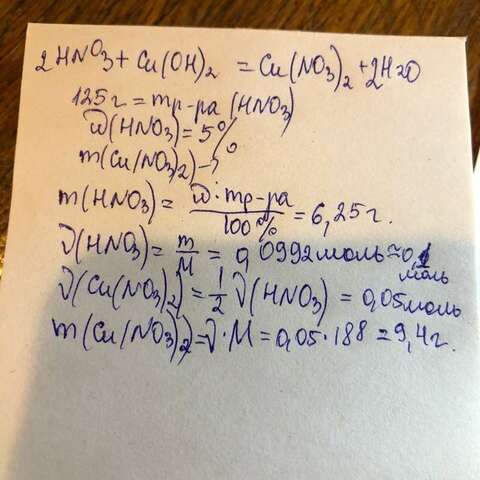 2HNO3 + Cu(OH)2 = Cu(NO3)2 + 2H2O
125г = mр-ра (HNO3)
ω(HNO3) = 5%
m(Cu(NO3)2) - ?
m(HNO3) = ω · mр-ра / 100% = 6,25г.
ν(HNO3) = m/M = 0,0992 моль ≈ 0,1 моль
ν(Cu(NO3)2) = 1/2 ν(HNO3) = 0,05 моль
m(Cu(NO3)2) = ν · M = 0,05 · 188 = 9,4г.